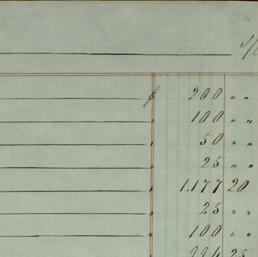 200 " "
100 " "
50 " "
25 " "
1.177 20
25 " "
100 " "